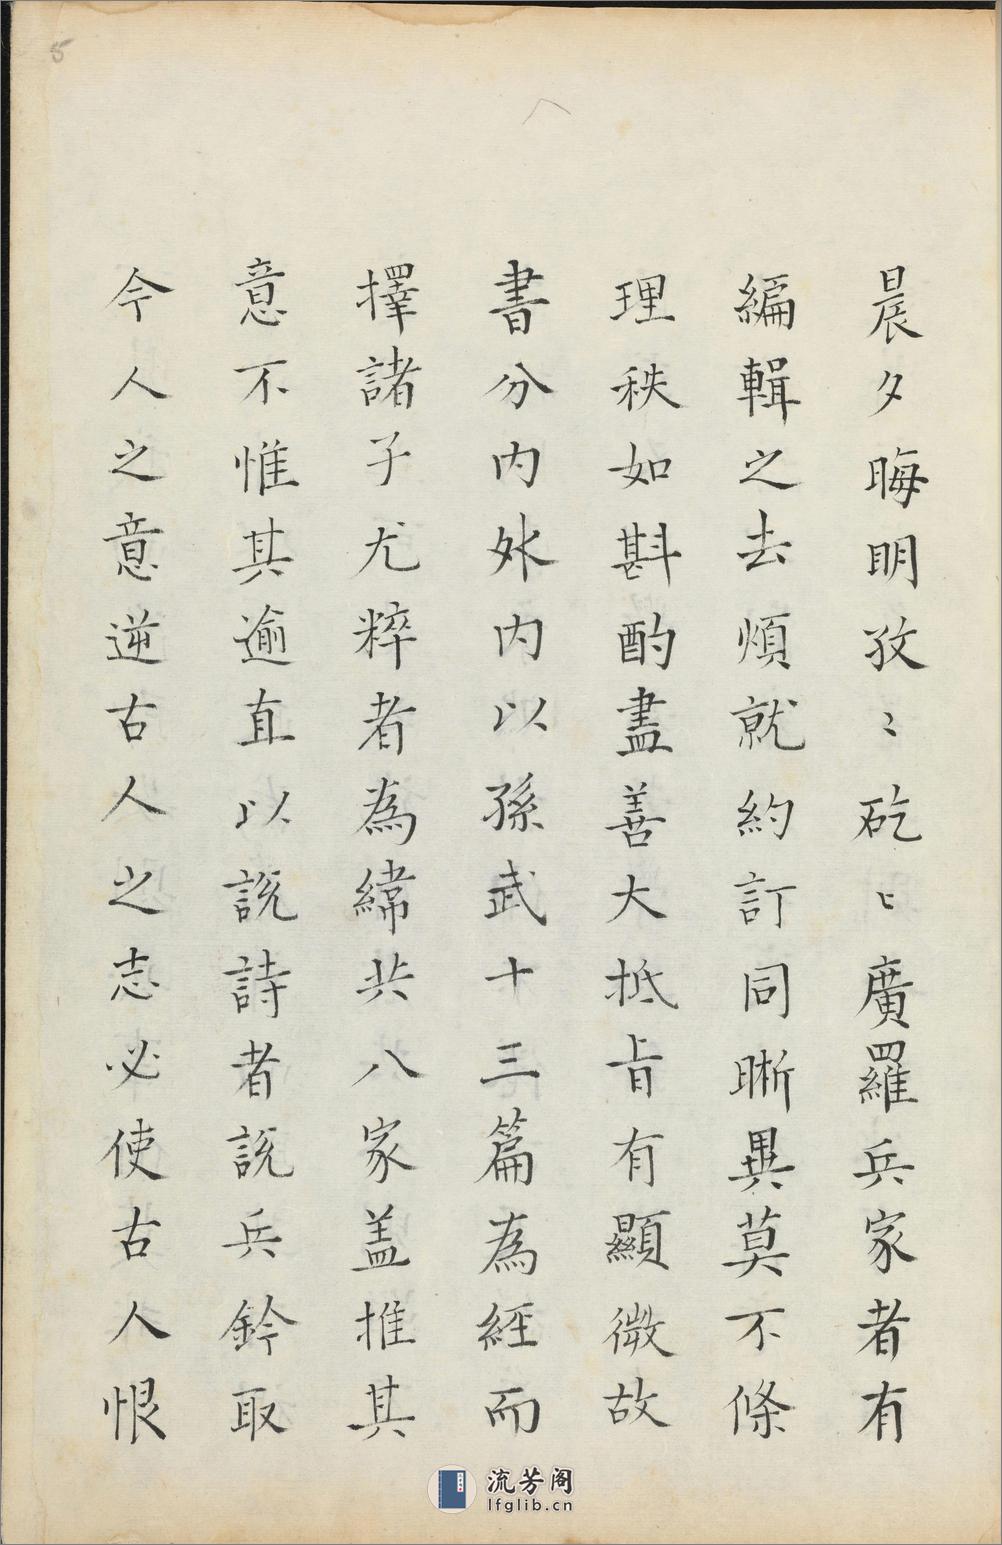 晨夕晦明孜〻矻〻廣羅兵家者有
編輯之去煩就約訂同晰異莫不條
理秩如斟酌盡善大抵旨有顯微故
書分内外内以孫武十三篇為經而
擇諸子尤粹者為緯共八家盖推其
意不惟其逾直以說詩者說兵鈐取
今人之意逆古人之志必使古人恨
5
流芳阁
lfglib.cn